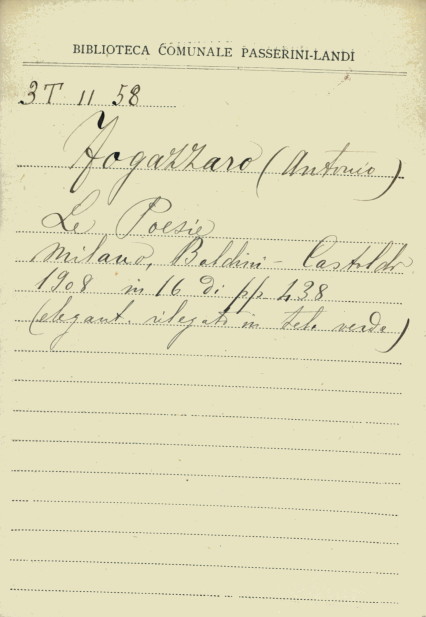 BIBLIOTECA COMUNALE PASSERINI-LANDI
3T 11 58
Fogazzaro (Antonio)
Le Poesie
Milano, Baldini - Castoldi
1908 in 16 di pp 438
(elegant. rilegato in tela verde)